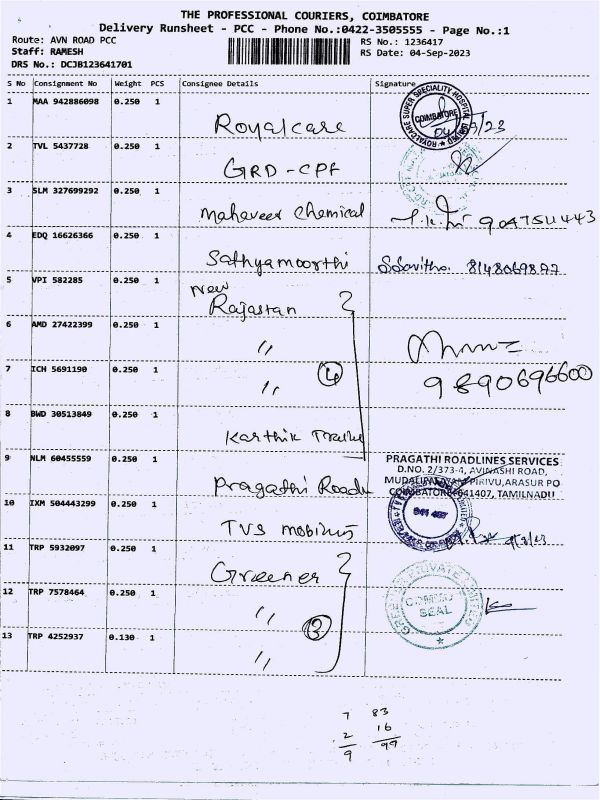 THE PROFESSIONAL COURIERS, COIMBATORE
Delivery Runsheet - PCC - Phone No.:0422-3505555 - Page No.:1
Route: AVN ROAD PCC
RS No.: 1236417
Staff: RAMESH
RS Date: 04-Sep-2023
DRS No.: DCJB123641701
S No Consignment No Weight PCS Consignee Details Signature
1 MAA 942886098 0.250 1 Royalcare
ROYALCARE SUPER SPECIALITY HOSPITAL LIMITED
COIMBATORE
2 TVL 5437728 0.250 1 GRD-CPF
3 SLM 327699292 0.250 1 Mahaveer Chemical
4 EDQ 16626366 0.250 1 Sathyamoorthi S.Savitha 8148069877
5 VPI 582285 0.250 1 New Rajastan
6 AMD 27422399 0.250 1 "
7 ICH 5691190 0.250 1 " 4 9890696600
8 BWD 30513849 0.250 1 Karthik
9 NLM 60455559 0.250 1 Pragathi Roads
PRAGATHI ROADLINES SERVICES
D.NO. 2/373-4, AVINASHI ROAD,
MUDALIPALAYAM PIRIVU, ARASUR PO
COIMBATORE 641407, TAMILNADU
10 IXM 504443299 0.250 1 TVS
641 407
11 TRP 5932097 0.250 1 Greener
12 TRP 7578464 0.250 1 "
SEAL
13 TRP 4252937 0.130 1 " 3
7 83
2 16
9 99